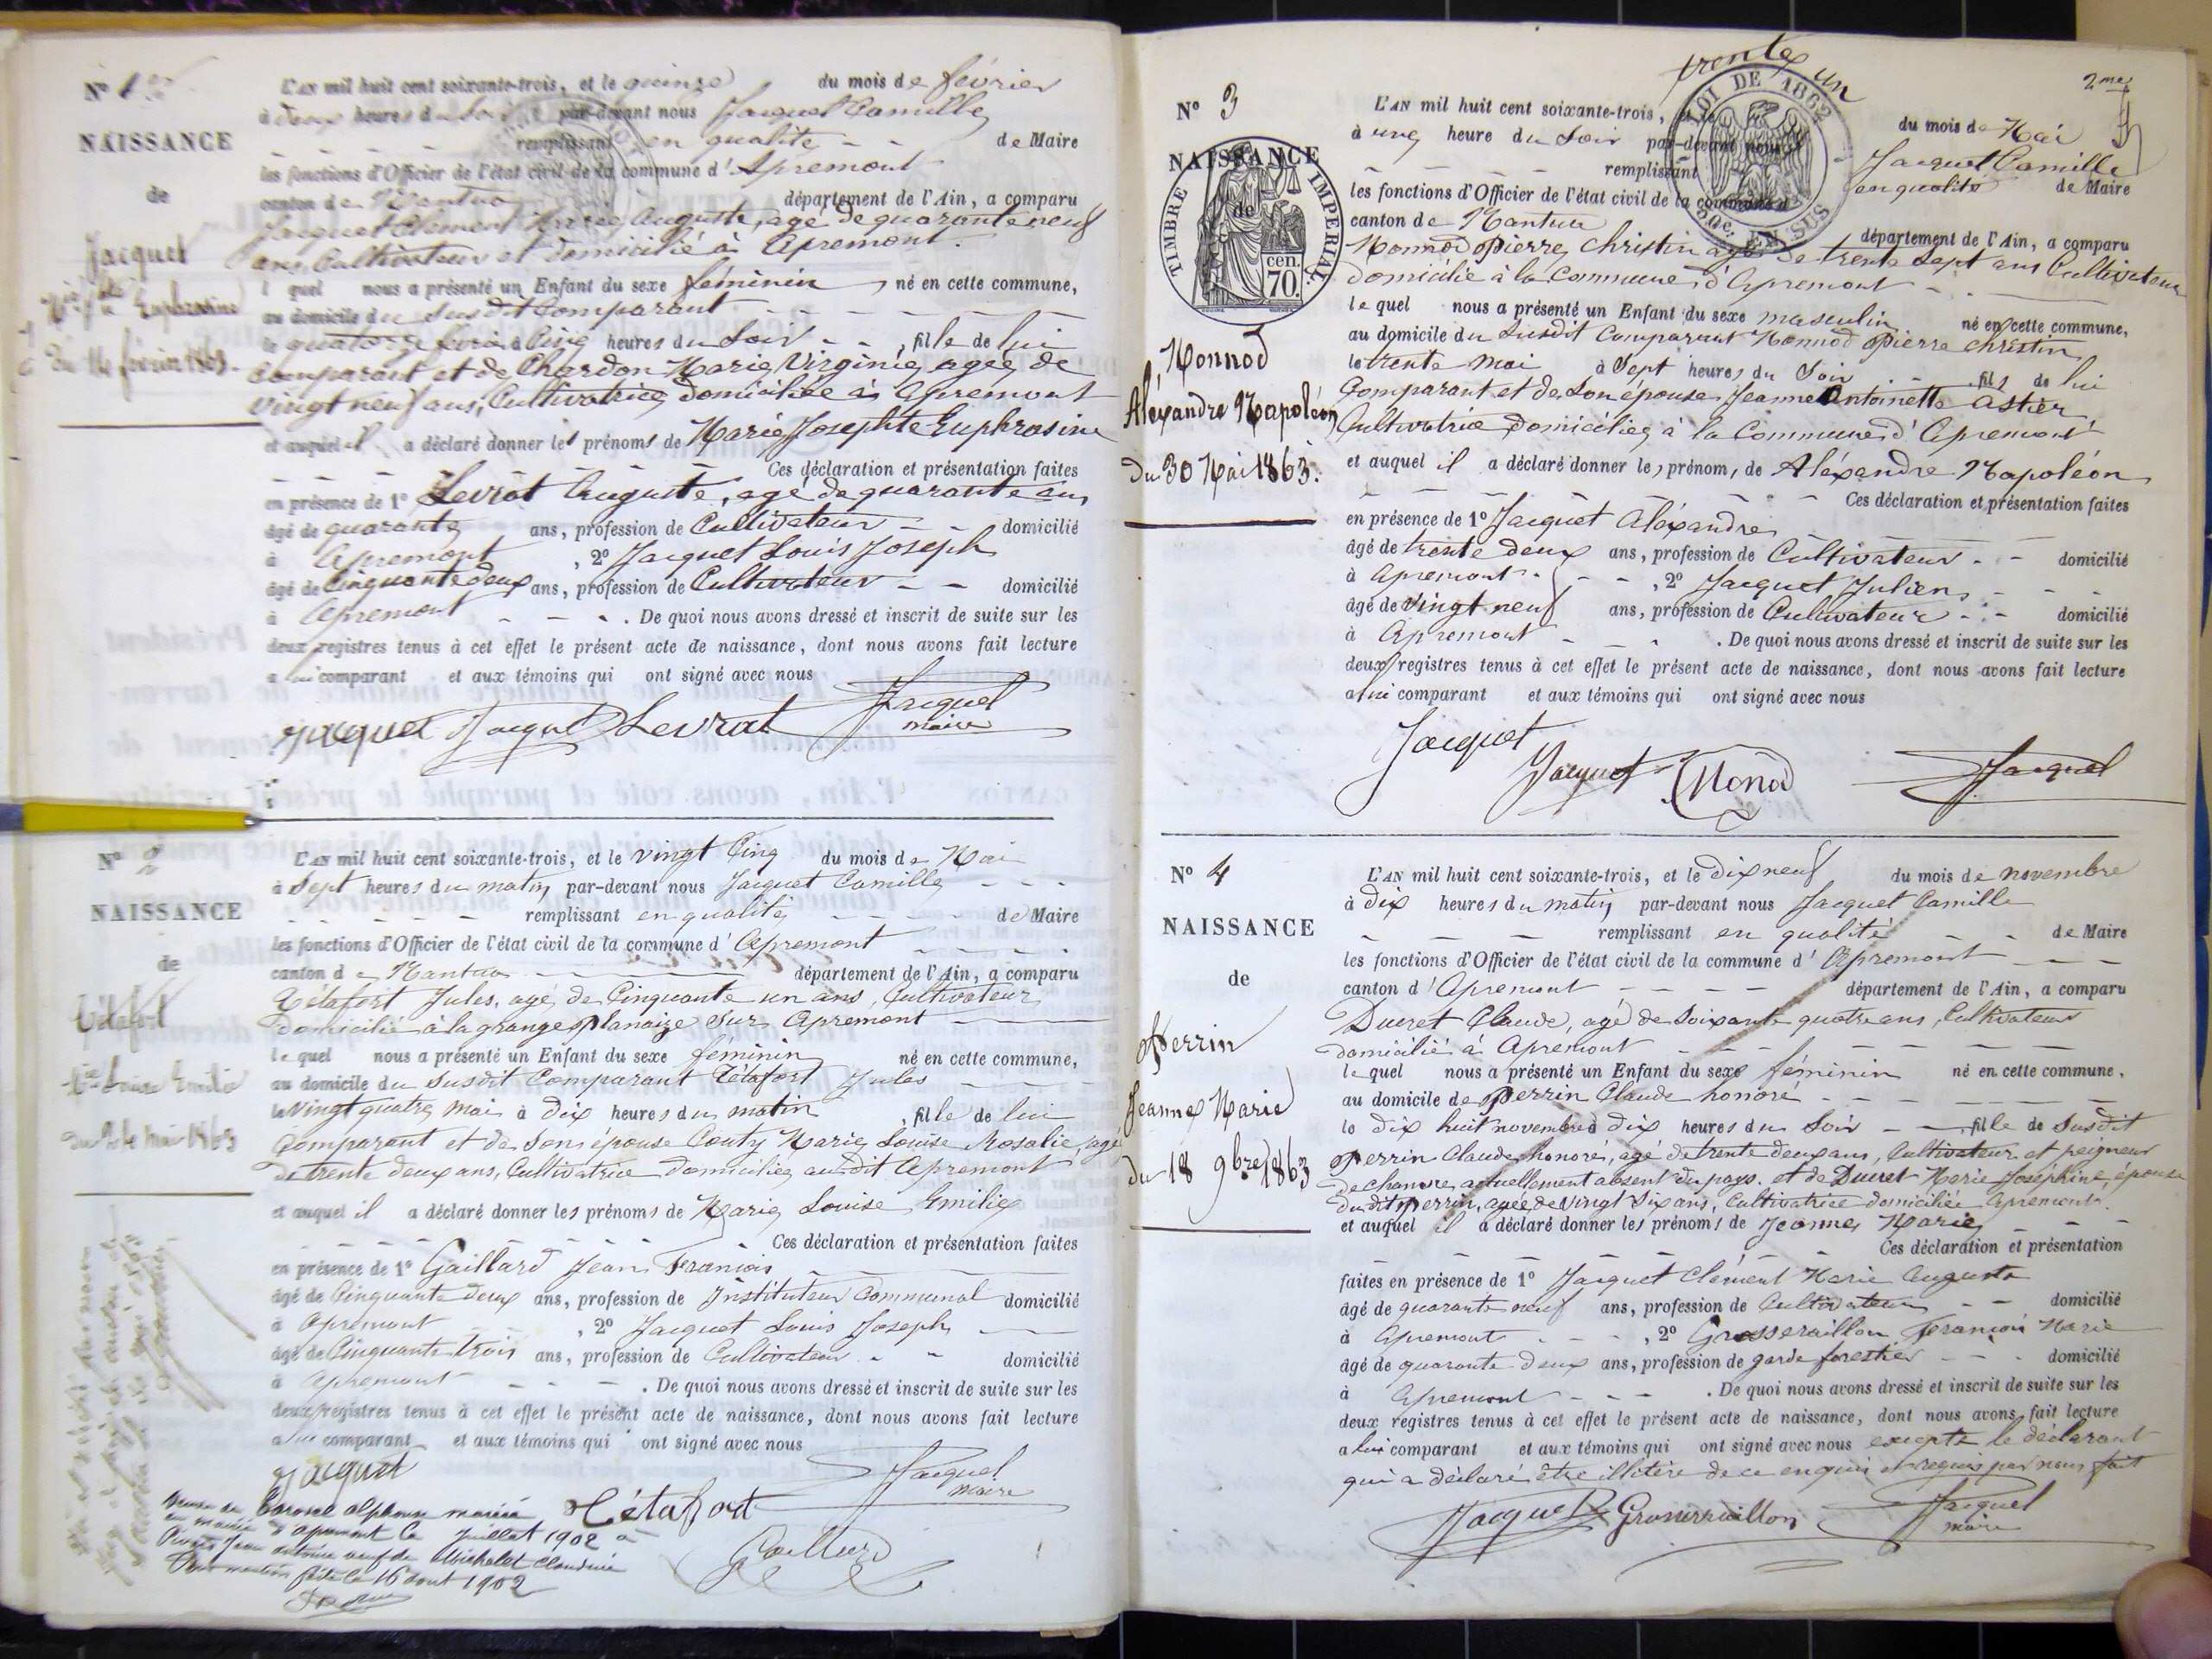 N° 1er
NAISSANCE
de
Jacquet
Mie Jte Euphrosine
du 14 février 1863.
L'AN mil huit cent soixante-trois, et le quinze du mois de février
à deux heures du soir par-devant nous Jacquet Camille
remplissant en qualité de Maire
les fonctions d'Officier de l'état civil de la commune d'Apremont
canton de Nantua département de l'Ain, a comparu
Jacquet Clément Marie Auguste, agé de quarante neuf
ans, Cultivateur et domicilié à Apremont.
lequel nous a présenté un Enfant du sexe féminin, né en cette commune,
au domicile du susdit Comparant
le quatorze février à Cinq heures du Soir, fille de lui
Comparant et de Chardon Marie Virginie, agée de
vingt neuf ans, Cultivatrice, domiciliée à Apremont
et auquel il a déclaré donner les prénoms de Marie Josephte Euphrosine
Ces déclaration et présentation faites
en présence de 1° Levrat Auguste, agé de quarante ans
âgé de quarante ans, profession de Cultivateur domicilié
à Apremont, 2° Jacquet Louis Joseph
âgé de Cinquante deux ans, profession de Cultivateur domicilié
à Apremont. De quoi nous avons dressé et inscrit de suite sur les
deux registres tenus à cet effet le présent acte de naissance, dont nous avons fait lecture
a lui comparant et aux témoins qui ont signé avec nous
Jacquet Jacquet Levrat Jacquet
maire
N° 2
NAISSANCE
de
Tétafort
Mie Louise Emilie
du 24 Mai 1863
L'AN mil huit cent soixante-trois, et le vingt Cinq du mois de Mai
à Sept heures du matin par-devant nous Jacquet Camille
remplissant en qualité de Maire
les fonctions d'Officier de l'état civil de la commune d'Apremont
canton de Nantua département de l'Ain, a comparu
Tétafort Jules, agé de Cinquante un ans, Cultivateur
domicilié à la grange planaize sur Apremont
lequel nous a présenté un Enfant du sexe féminin né en cette commune,
au domicile du susdit Comparant Tétafort Jules
le Vingt quatre mai à dix heures du matin, fille de lui
Comparant et de son épouse Couty Marie Louise Rosalie, agé
de trente deux ans, Cultivatrice domiciliée audit Apremont
et auquel il a déclaré donner les prénoms de Marie Louise Emilie
Ces déclaration et présentation faites
en présence de 1° Gaillard Jean François
âgé de Cinquante deux ans, profession de Instituteur Communal domicilié
à Apremont, 2° Jacquet Louis Joseph
âgé de Cinquante trois ans, profession de Cultivateur domicilié
à Apremont. De quoi nous avons dressé et inscrit de suite sur les
deux registres tenus à cet effet le présent acte de naissance, dont nous avons fait lecture
a lui comparant et aux témoins qui ont signé avec nous
Jacquet Tétafort Jacquet
maire
Gaillard
Alphonse mariée
en mairie d'apremont le juillet 1902 à
Jean antoine veuf de Michelet Claudine
mention faite le 16 aout 1902
2me
trente un
LOI DE 1862
EN SUS
N° 3
NAISSANCE
de
TIMBRE IMPERIAL
70 cen.
Monnod
Aléxandre Napoléon
du 30 Mai 1863.
L'AN mil huit cent soixante-trois, et le du mois de Mai
à une heure du Soir par-devant nous Jacquet Camille
remplissant en qualité de Maire
les fonctions d'Officier de l'état civil de la commune d
canton de Nantua département de l'Ain, a comparu
Monnod Pierre Christin agé de trente sept ans Cultivateur
domicilié à la Commune d'Apremont
lequel nous a présenté un Enfant du sexe masculin né en cette commune,
au domicile du susdit Comparant Monnod Pierre Christin
le trente mai à Sept heures du Soir fils de lui
Comparant et de Son épouse Jeanne Antoinette Astier
Cultivatrice domiciliée à la Commune d'Apremont
et auquel il a déclaré donner les prénoms de Aléxandre Napoléon
Ces déclaration et présentation faites
en présence de 1° Jacquet Aléxandre
âgé de trente deux ans, profession de Cultivateur domicilié
à Apremont, 2° Jacquet Julien
âgé de Vingt neuf ans, profession de Cultivateur domicilié
à Apremont. De quoi nous avons dressé et inscrit de suite sur les
deux registres tenus à cet effet le présent acte de naissance, dont nous avons fait lecture
a lui comparant et aux témoins qui ont signé avec nous
Jacquet
Jacquet Monod Jacquet
N° 4
NAISSANCE
de
Perrin
Jeanne Marie
du 18 9bre 1863
L'AN mil huit cent soixante-trois, et le dix neuf du mois de novembre
à dix heures du matin par-devant nous Jacquet Camille
remplissant en qualité de Maire
les fonctions d'Officier de l'état civil de la commune d'Apremont
canton d'Apremont département de l'Ain, a comparu
Ducret Claude, agé de Soixante quatre ans, Cultivateur
domicilié à Apremont
lequel nous a présenté un Enfant du sexe féminin né en cette commune,
au domicile de Perrin Claude honoré
le dix huit novembre à dix heures du Soir, fille de Susdit
Perrin Claude honoré, agé de trente deux ans, Cultivateur et peigneur
de chanvre, actuellement absent du pays, et de Ducret Marie Joséphine, épouse
dudit Perrin, agée de vingt six ans, Cultivatrice domiciliée Apremont.
et auquel il a déclaré donner les prénoms de Jeanne Marie
Ces déclaration et présentation
faites en présence de 1° Jacquet Clément Marie Auguste
âgé de quarante neuf ans, profession de Cultivateur domicilié
à Apremont, 2° Grosseraillon François Marie
âgé de quarante deux ans, profession de garde forestier domicilié
à Apremont. De quoi nous avons dressé et inscrit de suite sur les
deux registres tenus à cet effet le présent acte de naissance, dont nous avons fait lecture
a lui comparant et aux témoins qui ont signé avec nous excepté le déclarant
qui a déclaré être illitéré de ce enquis et requis par nous fait
Jacquet Jacquet
maire